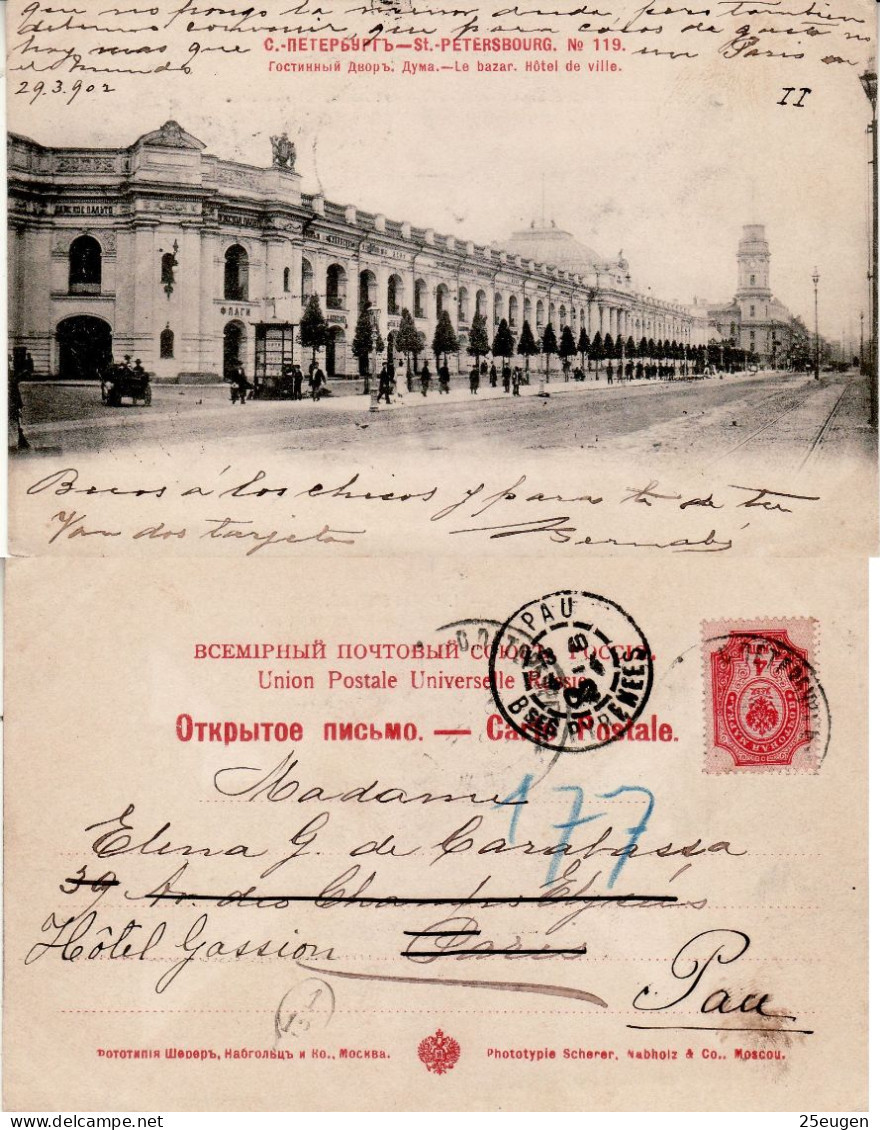 que no pongo la menor duda, pero tambien
debemos convenir, que para cosas de gusto no
hay mas que un Paris en
el mundo
29.3.902
С.-ПЕТЕРБУРГЪ—St.-PETERSBOURG. № 119.
Гостинный Дворъ. Дума.—Le bazar. Hôtel de ville.
II
ФЛАГИ
Besos á los chicos y para ti de tu
Van dos tarjetas Bernabé
ВСЕМІРНЫЙ ПОЧТОВЫЙ СОЮЗЪ. РОССІЯ.
Union Postale Universelle Russie.
Открытое письмо. — Carte Postale.
PAU
BSES PYRENEES
4
ПОЧТОВАЯ МАРКА
177
Madame
Elena G. de Carabassa
39 Av. des Champs Elysées
Hôtel Gassion Paris
Pau
Фототипія Шереръ, Набгольцъ и Ко., Москва.
Phototypie Scherer, Nabholz & Co., Moscou.
25eugen